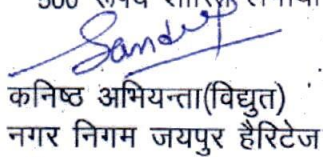 500 रूपये
Sandeep
कनिष्ठ अभियन्ता(विद्युत)
नगर निगम जयपुर हैरिटेज